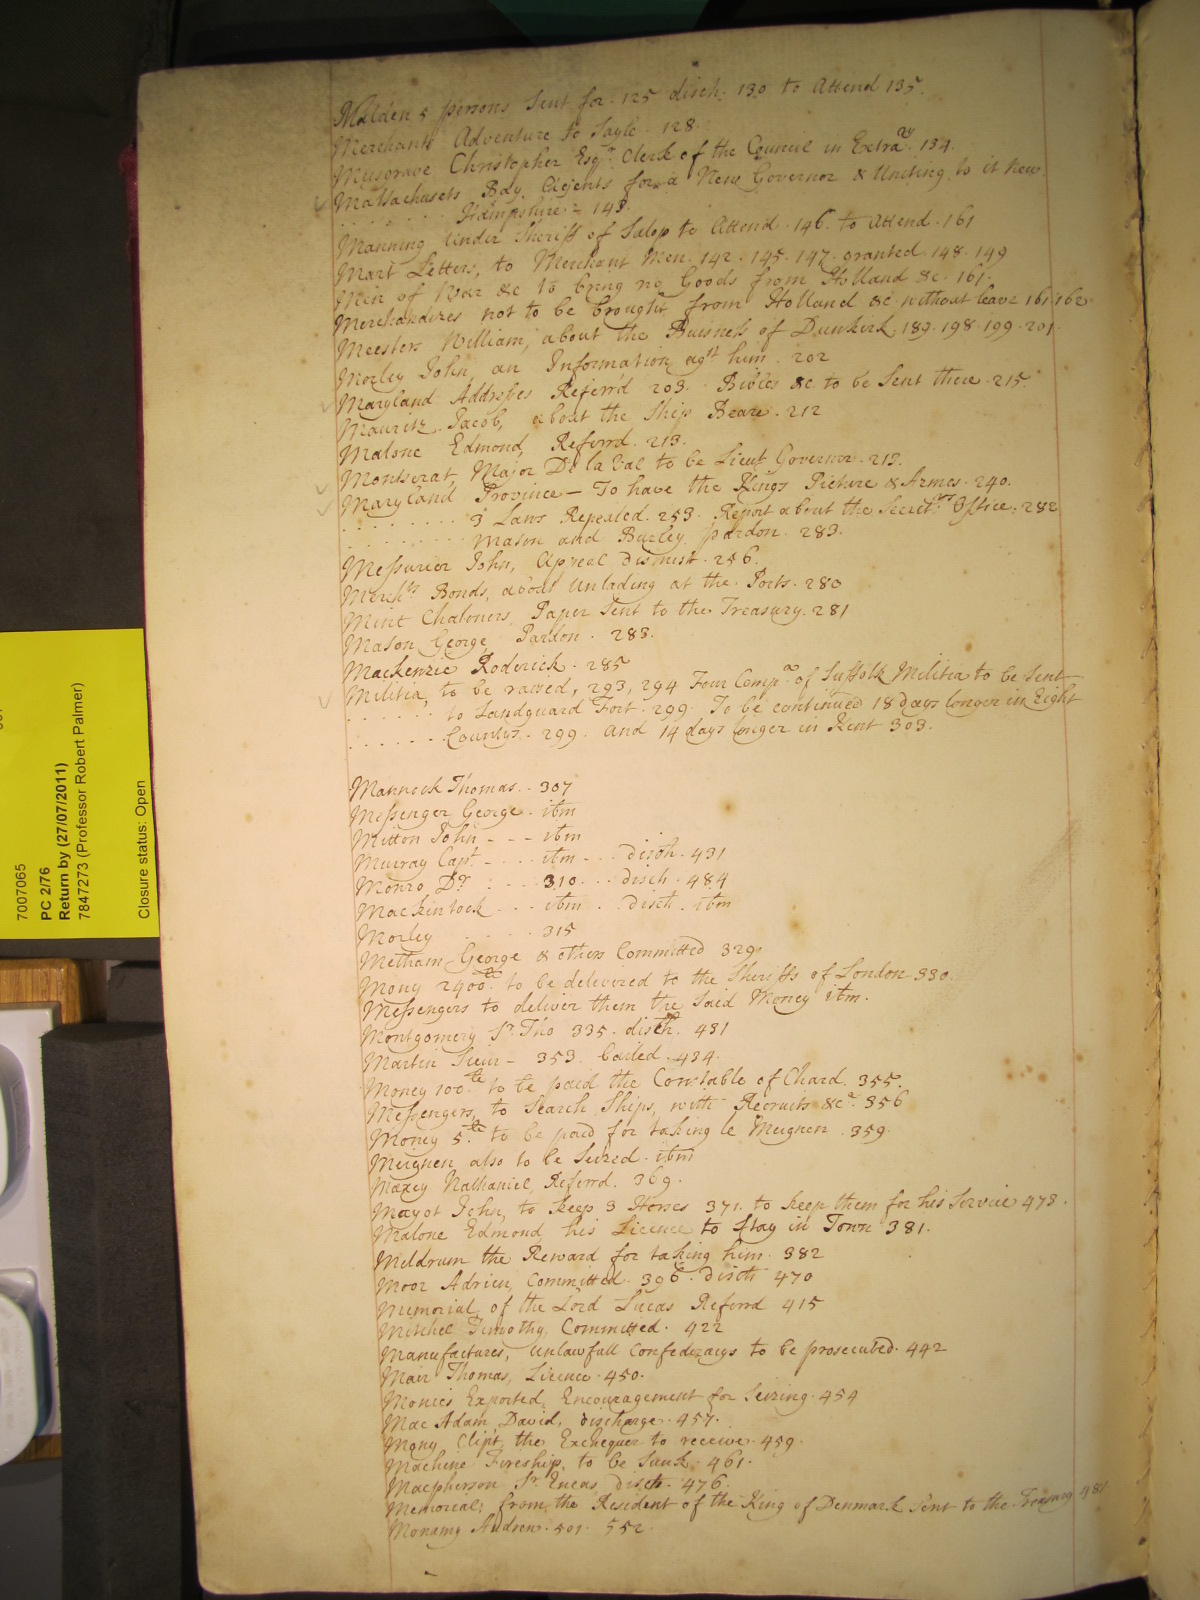 Malden 5 persons Sent for. 125 disch. 130 to Attend 135.
Merchant Adventure to Sayle. 128.
Musgrave Christopher Esqr. Clerk of the Council in Extrary. 134.
Massachusets Bay, Agents for a New Governor & Uniting to it New
. . . . . . Hampshire - 143.
Manning Under Sheriff of Salop to Attend. 146. to Attend. 161
Mart Letters, to Merchant Men. 142. 145. 147. granted. 148. 149
Men of War &c to bring no Goods from Holland &c. 161.
Merchandizes not to be brought from Holland &c without leave 161. 162.
Meesters William, about the Buisness of Dunkirk. 189. 198. 199. 201.
Morley John, an Information agst him. 202
Maryland Addresses Referr'd 203. Bibles &c to be Sent there. 215.
Mauritz Jacob, about the Ship Beare. 212
Malone Edmond, Referrd. 213.
Montserat, Major De la Val to be Lieut Governor. 213.
Maryland Province - To have the Kings Picture & Armes. 240.
. . . . . . . . 3 Laws Repealed. 253. Report about the Secretrys Office. 282
. . . . . . . . Mason and Burley pardon. 283.
Messurier John, Appeal dismist. 256.
Merchts Bonds, about Unlading at the Ports. 280
Mint Chaloners Paper Sent to the Treasury. 281
Mason George, Pardon. 283.
Mackenzie Roderick. 285
Militia, to be raised, 293, 294 Four Compas. of Suffolk Militia to be sent
. . . . . . to Landguard Fort. 299. To be continued 18 days longer in Eight
. . . . . . Countys. 299. And 14 days longer in Kent 303.
Mannock Thomas. . 307
Messenger George. itm
Mitton John - - - itm
Murray Capt. - . . itm . . . Disch. 431
Monro Dr. . . . 310 . . . disch. 484
Mackintosh . . . itm . . disch. itm
Morley . . . . . 315
Metham George & others Committed 329
Mony 2400le. to be delivered to the Sheriffs of London. 330.
Messengers to deliver them the Said Money itm.
Montgomery Sr. Tho 335. disch. 431
Martin - 353. bailed. 434.
Money 100le. to be paid the Constable of Chard. 355.
Messengers, to Search Ships, with Recruits &ca. 356
Money 5le. to be paid for taking le Meignen. 359.
Meignen also to be Seized. itm
Maxey Nathaniel, Referrd. 369.
Mayot John, to keep 3 Horses 371. to keep them for his Service 473.
Malone Edmond, his Licence to stay in Town 381.
Meldrum the Reward for taking him. 382
Moor Adrien, Committed. 396. disch 470
Memorial of the Lord Lucas Referrd 415
Mitchel Timothy, Committed. 422
Manufactures, Unlawfull Confederacys to be prosecuted. 442
Mair Thomas, Licence. 450.
Monies Exported, Encouragement for Seizing. 454
Mac Adam David, discharge. 457.
Mony Clipt, the Exchequer to receive. 459.
Machine Fireship, to be Sunk. 461.
Macpherson Sr. Eneas, disch. 476.
Memorial, from the Resident of the King of Denmark Sent to the Treasury 481
Monamy Andrew. 501. 552.
7007065
PC 2/76
Return by (27/07/2011)
7847273 (Professor Robert Palmer)
Closure status: Open